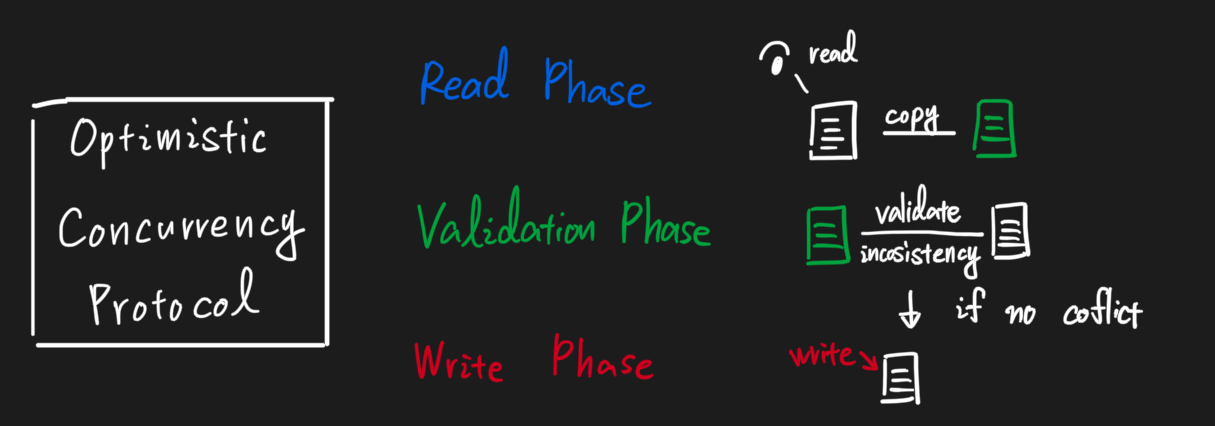 Optimistic
Concurrency
Protocol
Read Phase
read
copy
Validation Phase
validate
incosistency
if no coflict
Write Phase
write